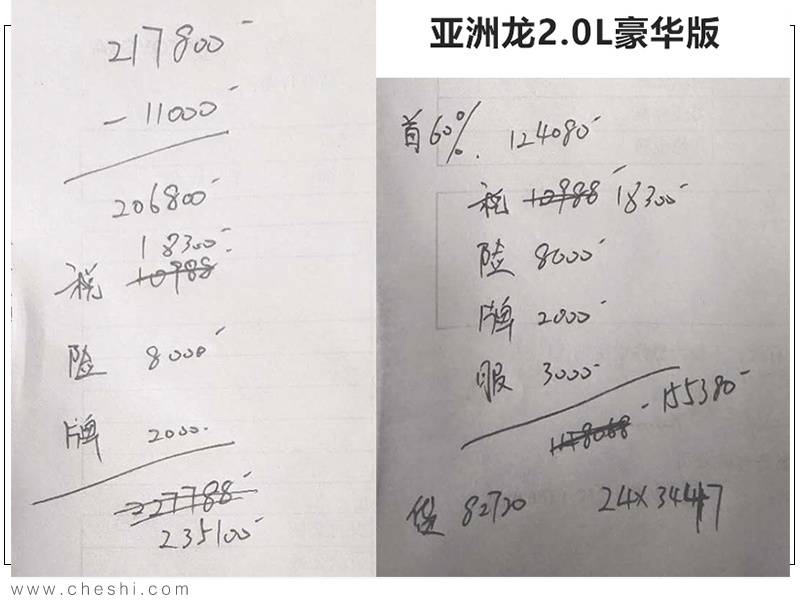 亚洲龙2.0L豪华版
217800
- 11000
206800
18300
税 10988
险 8000
牌 2000
227788
235100
首60% 124080
税 10988 18300
险 8000
牌 2000
服 3000
155380
118068
贷 82720 24×3447
www.cheshi.com